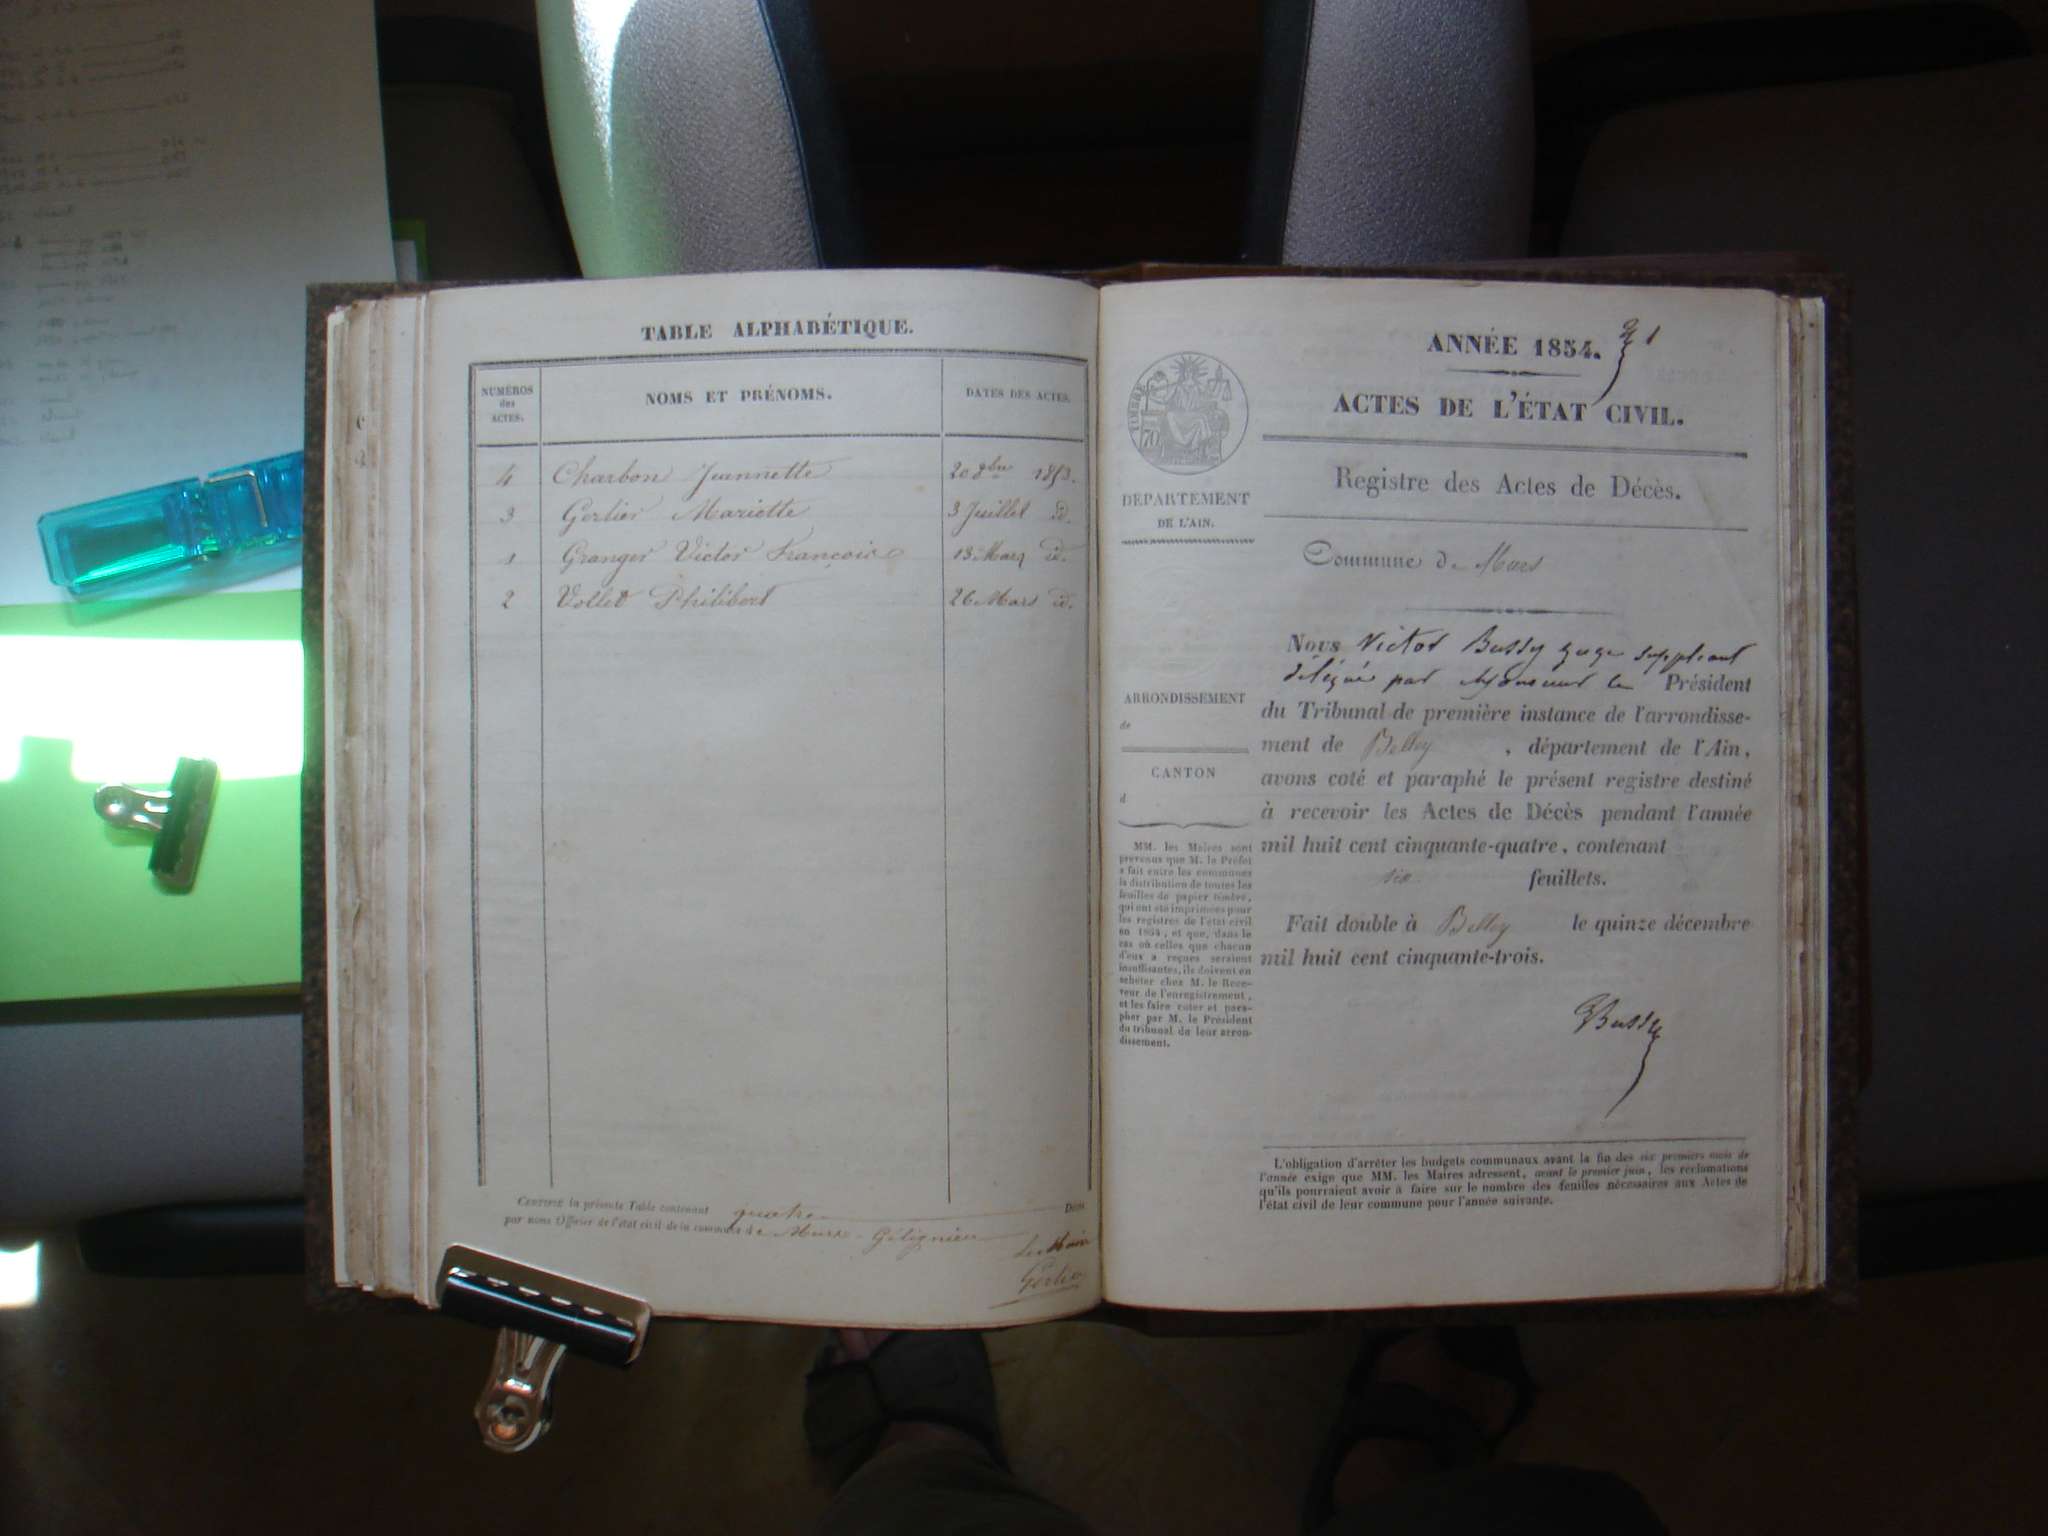 TABLE ALPHABÉTIQUE.
NUMÉROS des ACTES. NOMS ET PRÉNOMS. DATES DES ACTES.
4 Charbon Jeannette 20 8bre 1853.
3 Gerlier Mariette 3 Juillet id.
1 Granger Victor François 13 Mars id.
2 Vollet Philibert 26 Mars id.
CERTIFIÉ la présente Table contenant quatre Décès
par nous Officier de l'état civil de la commune de Murs-Gélignieu
Le Maire
Gerlier
ANNÉE 1854.
1
ACTES DE L'ÉTAT CIVIL.
TIMBRE
70
Registre des Actes de Décès.
DÉPARTEMENT
DE L'AIN.
Commune de Murs
Nous Victor Bussy juge suppléant
délégué par Monsieur le Président
du Tribunal de première instance de l'arrondisse-
ment de Belley, département de l'Ain,
avons coté et paraphé le présent registre destiné
à recevoir les Actes de Décès pendant l'année
mil huit cent cinquante-quatre, contenant
six feuillets.
Fait double à Belley le quinze décembre
mil huit cent cinquante-trois.
Bussy
ARRONDISSEMENT
de
CANTON
d
MM. les Maires sont
prévenus que M. le Préfet
a fait entre les communes
la distribution de toutes les
feuilles de papier timbré,
qui ont été imprimées pour
les registres de l'état civil
en 1854, et que, dans le
cas où celles que chacun
d'eux a reçues seraient
insuffisantes, ils doivent en
acheter chez M. le Rece-
veur de l'enregistrement,
et les faire coter et para-
pher par M. le Président
du tribunal de leur arron-
dissement.
L'obligation d'arrêter les budgets communaux avant la fin des six premiers mois de
l'année exige que MM. les Maires adressent, avant le premier juin, les réclamations
qu'ils pourraient avoir à faire sur le nombre des feuilles nécessaires aux Actes de
l'état civil de leur commune pour l'année suivante.